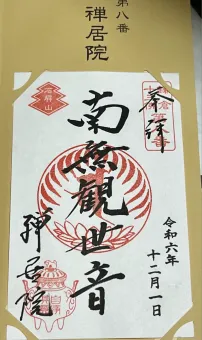 第八番
禅居院
奉拝
南無観世音
令和六年
十二月一日
禅居院